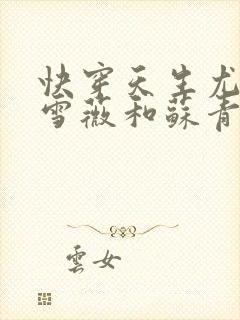 快穿天生尤
雪薇和蘇青
雲女